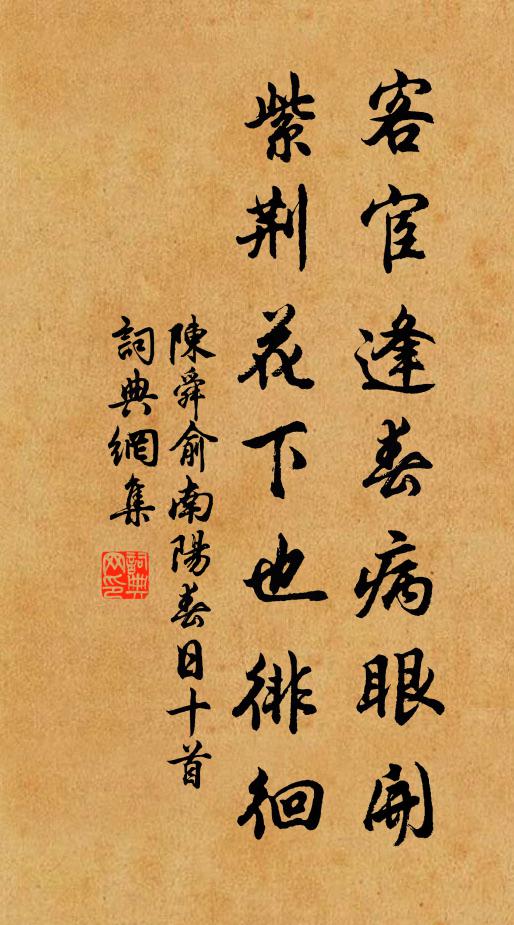 客宦逢春病眼開
紫荆花下也徘徊
陳舜俞南陽春日十首
詞典網集
詞典網印